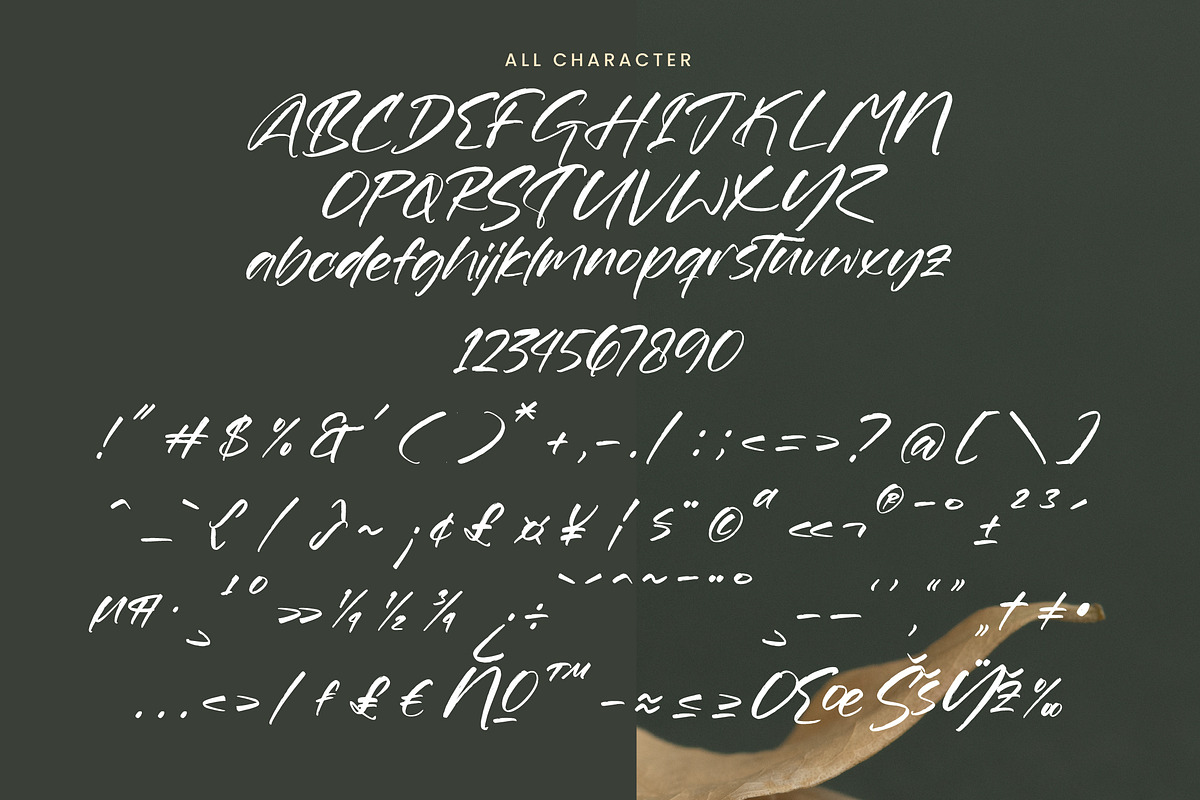 ALL CHARACTER
ABCDEFGHIJKLMN
OPQRSTUVWXYZ
abcdefghijklmnopqrstuvwxyz
1234567890
!"#$%&'()*+,-./:;<=>?@[\]
^_`{/}~¡¢£¤¥¦§¨©ª«¬®¯°±²³´
µ¶·¸¹º»¼½¾¿÷ˋˊˆ˜¯¨˚¸–—‘’‚“”„†‡•
...<>/ƒ₤€№™−≈≤≥ŒœŠšŸž‰